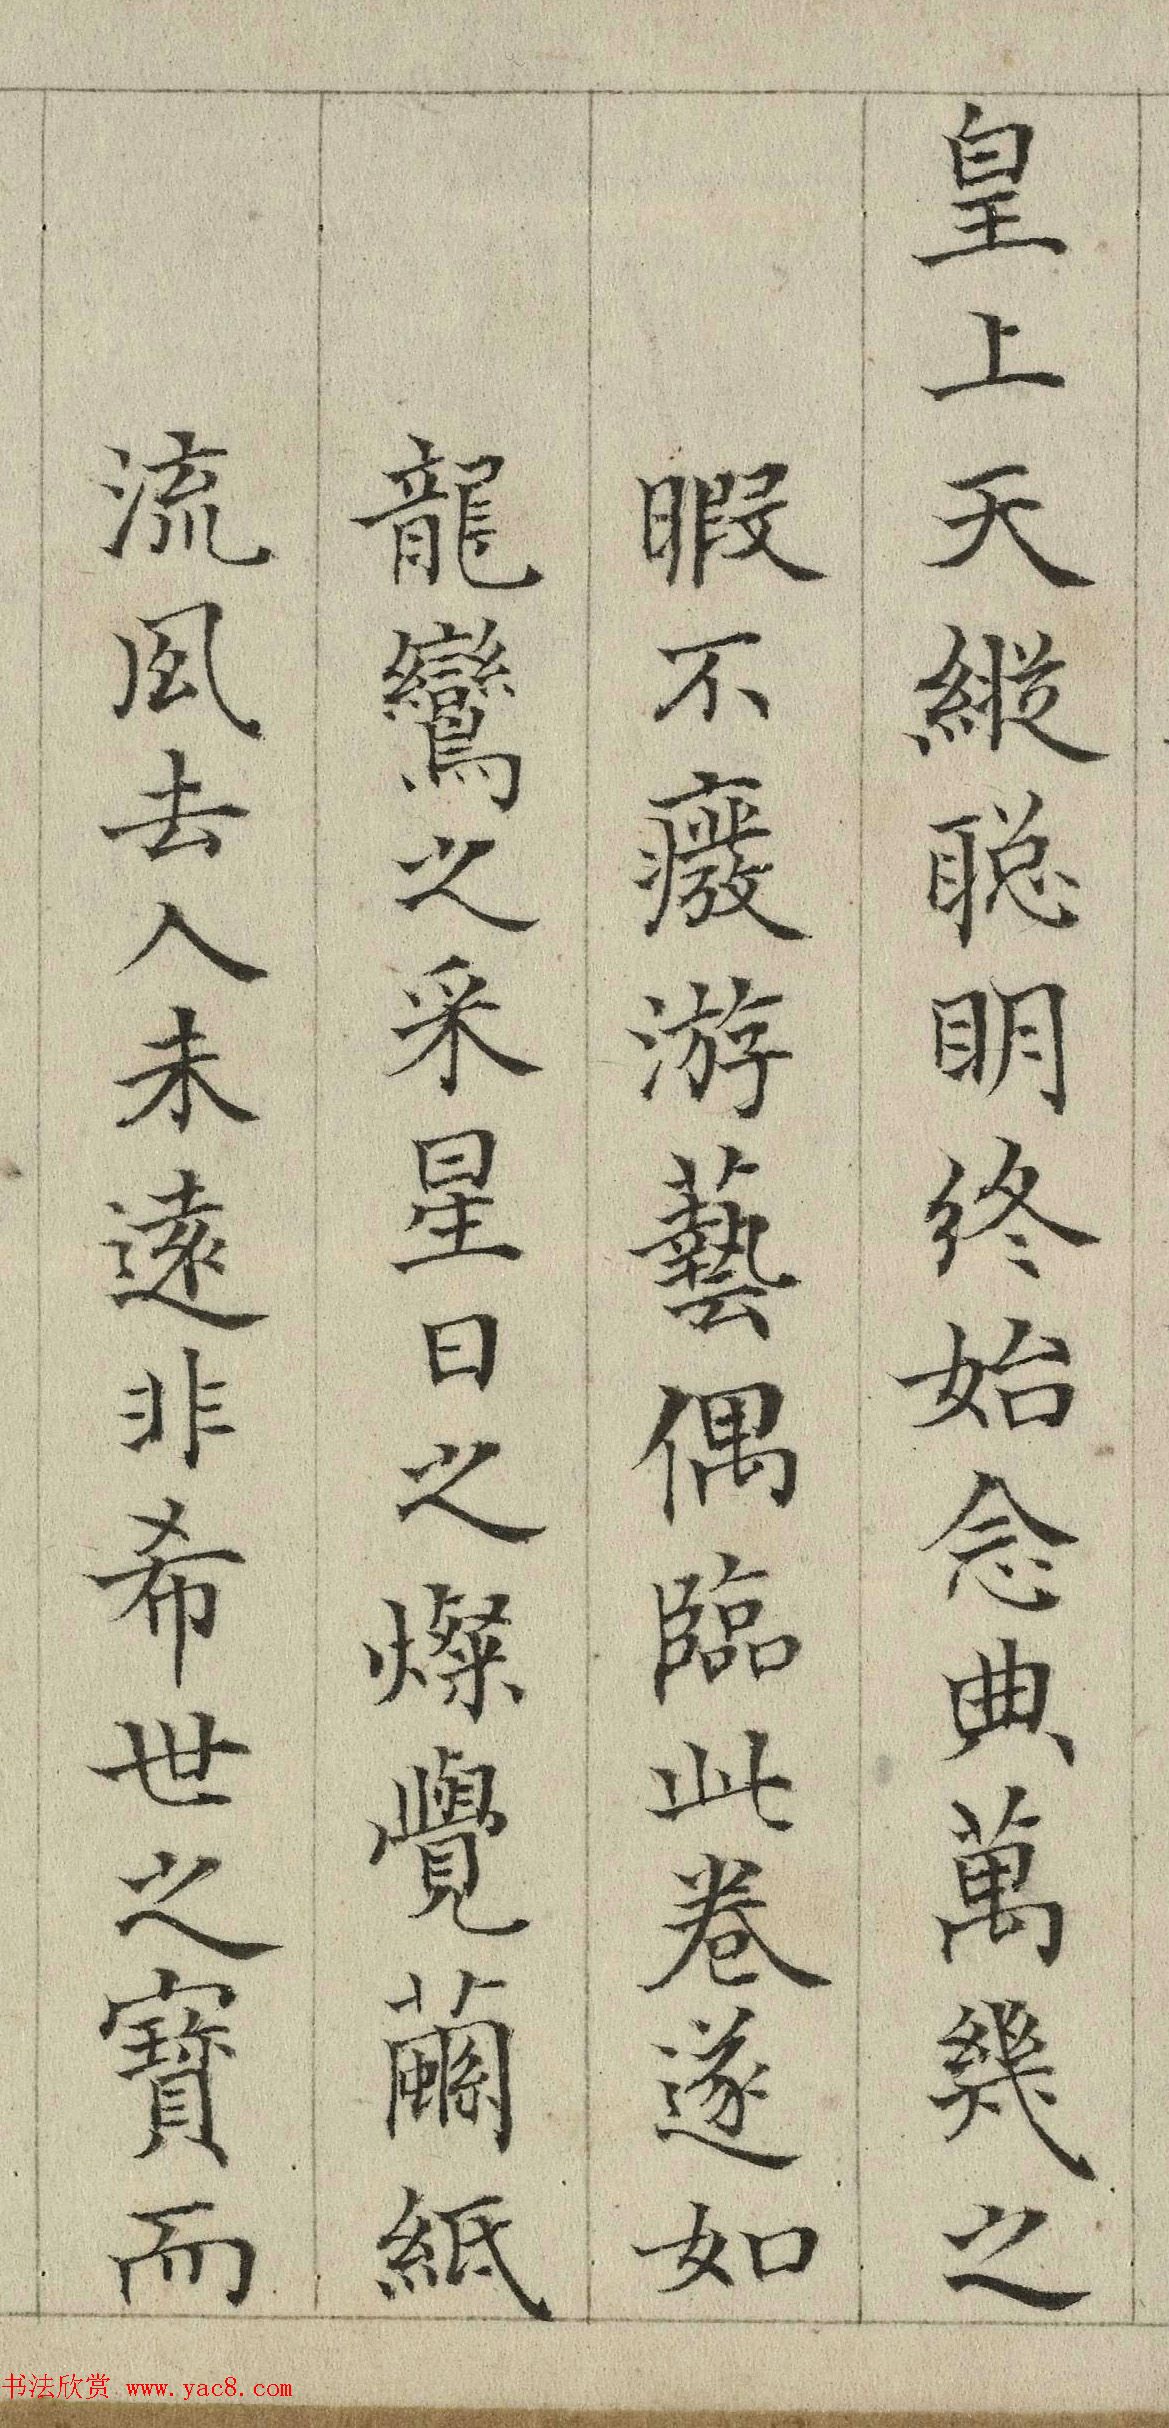 皇上天縱聰明終始念典萬幾之
暇不廢游藝偶臨此卷遂如
龍鸞之采星日之燦覺繭紙
流風去人未遠非希世之寶而
书法欣赏 www.yac8.com